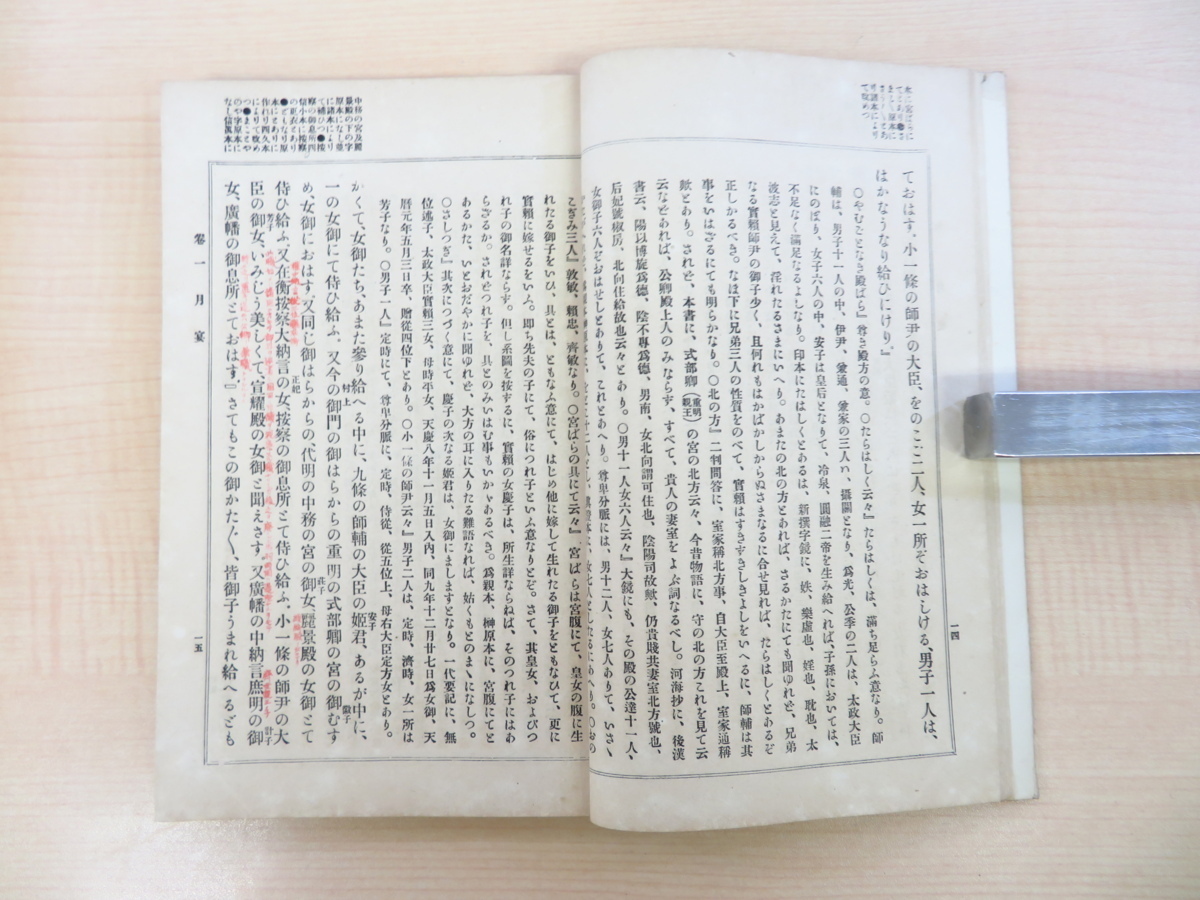 ておはす。小一條の師尹の大臣、をのこご二人、女一所ぞおはしける、男子一人は、
はかなうなり給ひにけり。』
〇やむごとなき殿ばら』尊き殿方の意。〇たらはしく云々』たらはしくは、滿ち足らふ意なり。師
輔は、男子十一人の中、伊尹、兼通、兼家の三人ハ、攝關となり、爲光、公季の二人は、太政大臣
にのぼり、女子六人の中、安子は皇后となりて、冷泉、圓融二帝を生み給へれば、子孫においては、
不足なく滿足なるよしなり。印本にたはしくとあるは、新撰字鏡に、妷、樂盧也、婬也、耽也、太
波志と見えて、淫れたるさまにいへり。あまたの北の方とあれば、さるかたにても聞ゆれど、兄弟
なる實賴師尹の御子少く、且何れもはかばかしからぬさまなるに合せ見れば、たらはしくとあるぞ
正しかるべき。なほ下に兄弟三人の性質をのべて、實賴はすきずきしきよしをいへるに、師輔は其
事をいはざるにても明らかなり。〇北の方』二判問答に、室家稱北方事、自大臣至殿上、室家通稱
歟とあり。されど、本書に、式部卿(重明親王)の宮の北方云々、今昔物語に、守の北の方これを見て云
云などあれば、公卿殿上人のみならず、すべて、貴人の妻室をよぶ詞なるべし。河海抄に、後漢
書云、陽以博施爲德、陰不專爲德、男南、女北向謂可住也、陰陽司故歟、仍貴賤共妻室北方號也、
后妃號椒房、北向住給故也云々とあり。〇男十一人女六人云々』大鏡にも、その殿の公達十一人、
女御子六人ぞおはせしとありて、これとあへり。尊卑分脈には、男十二人、女七人ありて、いさゝ
一四
こぎみ三人』敦敏、賴忠、齊敏なり。〇宮ばらの具にて云々』宮ばらは宮腹にて、皇女の腹に生
れたる御子をいひ、具とは、ともなふ意にて、はじめ他に嫁して生れたる御子をともなひて、更に
實賴に嫁せるをいふ。即ち先夫の子にて、俗につれ子といふ意なりとぞ。さて、其皇女、およびつ
れ子の御名詳ならず。但し系圖を按するに、實賴の女慶子は、所生詳ならねば、そのつれ子にはあ
らざるか。されどつれ子を、具とのみいはむ事もいかゞあるべき。爲親本、榊原本に、宮腹にてと
あるかた、いとおだやかに聞ゆれど、大方の耳に入りたる難語なれば、姑くもとのまゝになしつ。
〇さしつぎ』其次につづく意にて、慶子の次なる姬君は、女御にましますとなり。一代要記に、無
位述子、太政大臣實賴三女、母時平女、天慶八年十一月五日入内、同九年十二月廿七日爲女御、天
曆元年五月三日卒、贈從四位下とあり。〇小一條の師尹云々』男子二人は、定時、濟時、女一所は
芳子なり。〇男子一人』定時にて、尊卑分脈に、定時、侍從、從五位上、母右大臣定方女とあり。
かくて、女御たち、あまた參り給へる中に、九條の師輔の大臣の姬君、あるが中に、
一の女御にて侍ひ給ふ、又今の御門の御はらからの重明の式部卿の宮の御むす
め、女御におはす、又同じ御はらからの、代明の中務の宮の御女、麗景殿の女御とて
侍ひ給ふ、又在衡按察大納言の女、按察の御息所とて侍ひ給ふ、小一條の師尹の大
臣の御女、いみじう美しくて、宣耀殿の女御と聞えさす、又廣幡の中納言庶明の御
女、廣幡の御息所とておはす〔〕さてもこの御かたゞゝ、皆御子うまれ給へるども
安子
村上
徽子
正妃
莊子
芳子
計子
中務の宮及麗
景殿の下の字
原本になし並
に諸本により
て補ひつ●按
察の御息所四
卷一 月宴
一五